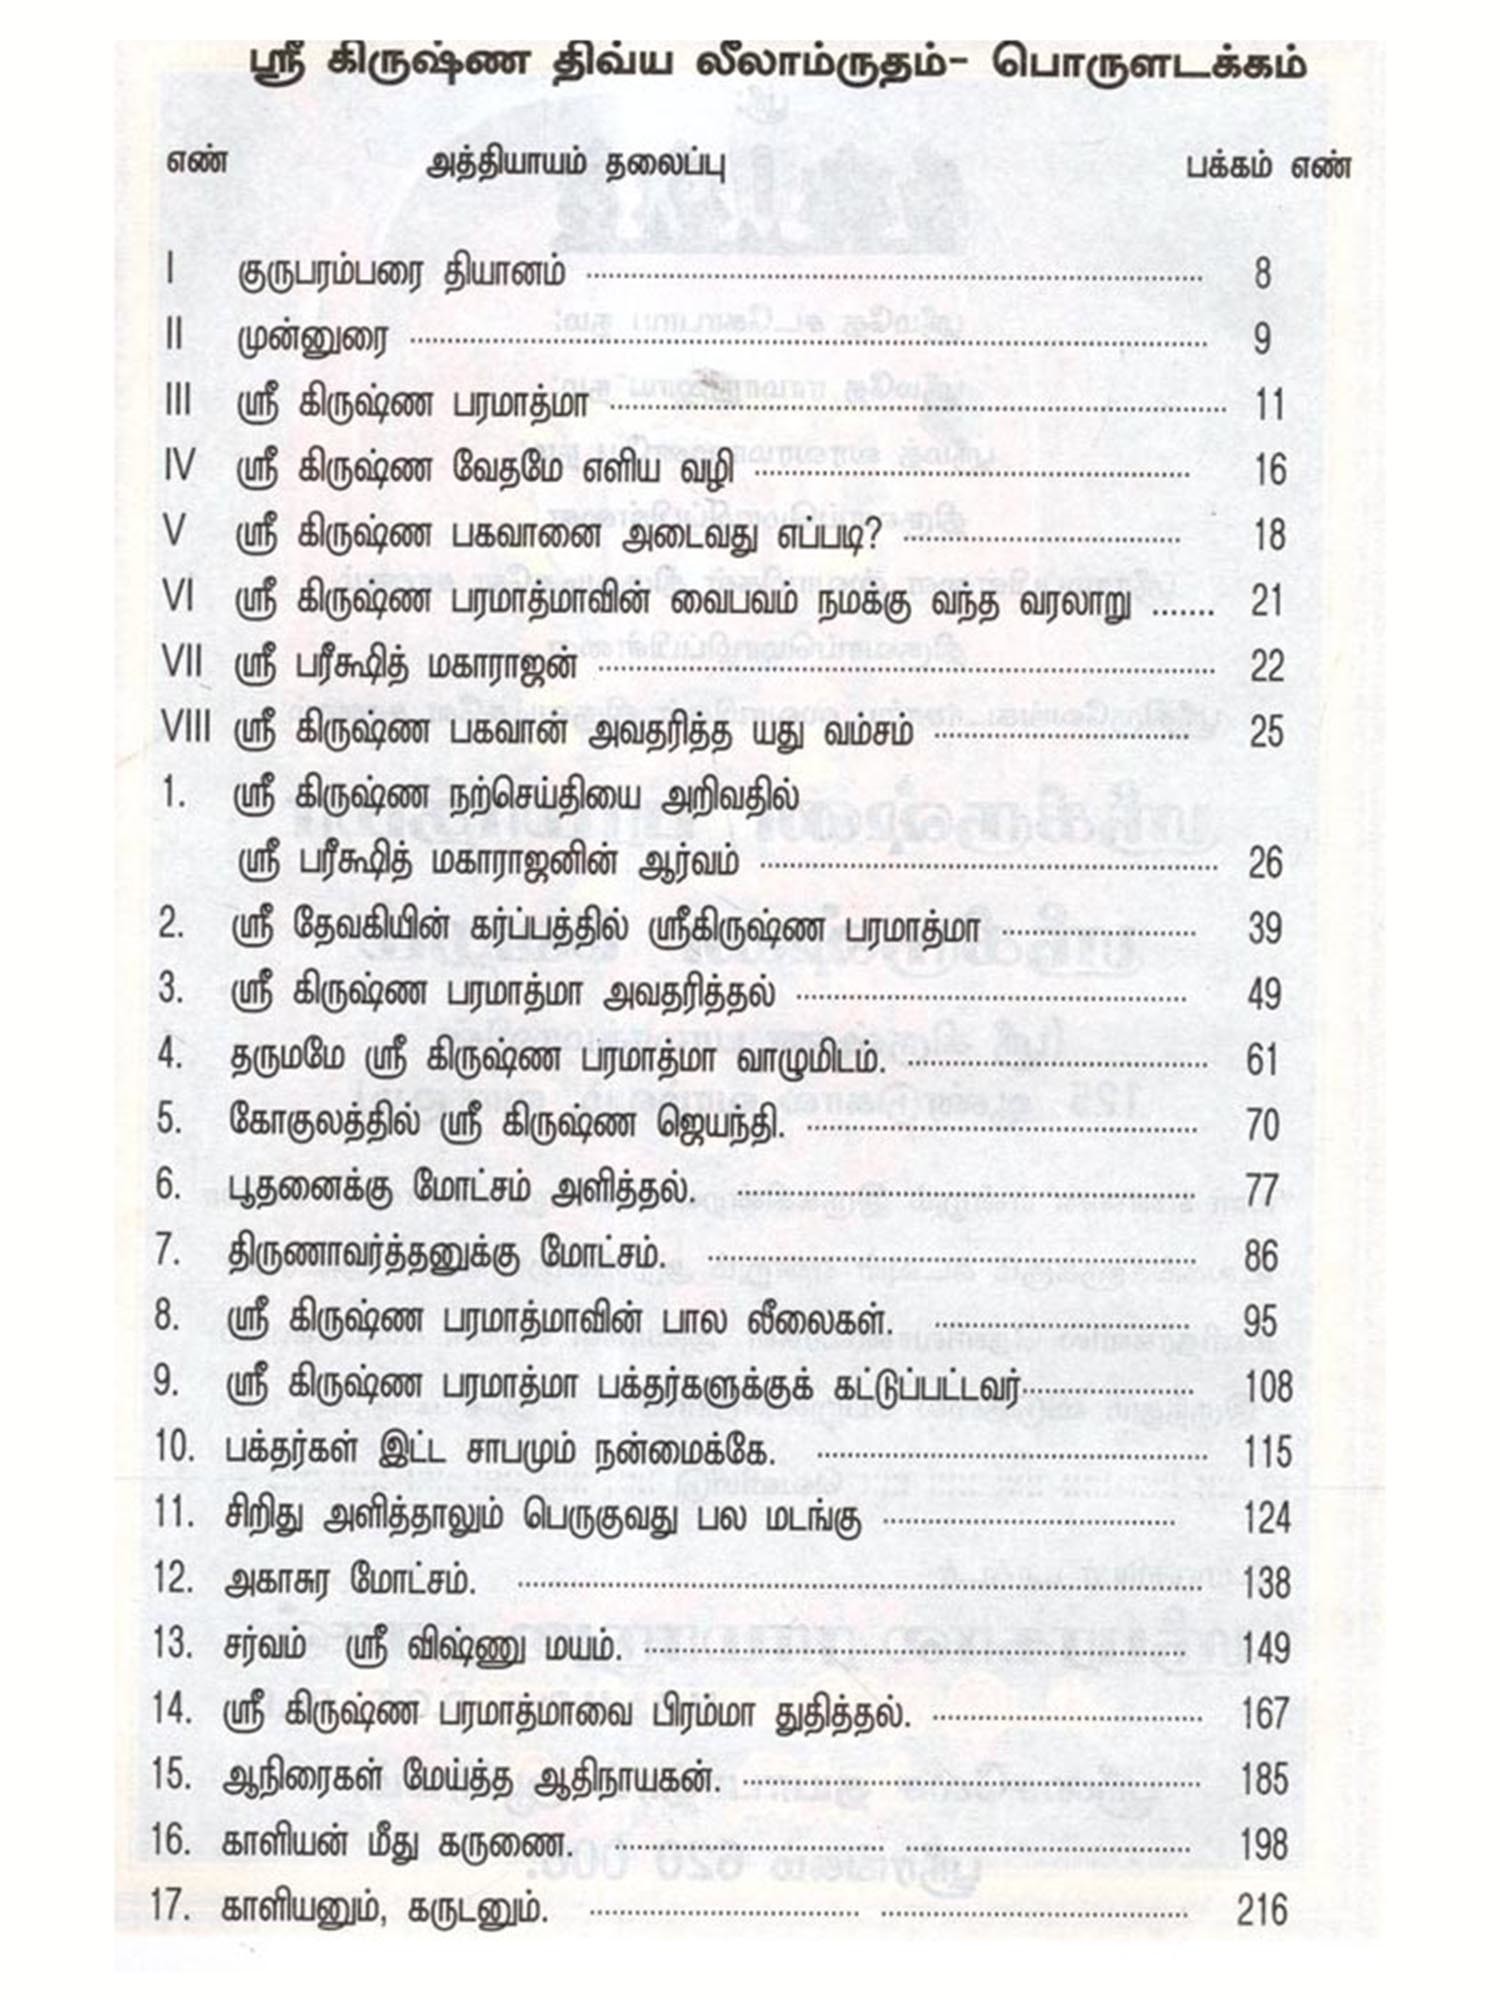 ஸ்ரீ கிருஷ்ண திவ்ய லீலாம்ருதம்- பொருளடக்கம்
எண் அத்தியாயம் தலைப்பு பக்கம் எண்
I குருபரம்பரை தியானம் 8
II முன்னுரை 9
III ஸ்ரீ கிருஷ்ண பரமாத்மா 11
IV ஸ்ரீ கிருஷ்ண வேதமே எளிய வழி 16
V ஸ்ரீ கிருஷ்ண பகவானை அடைவது எப்படி? 18
VI ஸ்ரீ கிருஷ்ண பரமாத்மாவின் வைபவம் நமக்கு வந்த வரலாறு ....... 21
VII ஸ்ரீ பரீக்ஷித் மகாராஜன் 22
VIII ஸ்ரீ கிருஷ்ண பகவான் அவதரித்த யது வம்சம் 25
1. ஸ்ரீ கிருஷ்ண நற்செய்தியை அறிவதில்
ஸ்ரீ பரீக்ஷித் மகாராஜனின் ஆர்வம் 26
2. ஸ்ரீ தேவகியின் கர்ப்பத்தில் ஸ்ரீகிருஷ்ண பரமாத்மா 39
3. ஸ்ரீ கிருஷ்ண பரமாத்மா அவதரித்தல் 49
4. தருமமே ஸ்ரீ கிருஷ்ண பரமாத்மா வாழுமிடம். 61
5. கோகுலத்தில் ஸ்ரீ கிருஷ்ண ஜெயந்தி. 70
6. பூதனைக்கு மோட்சம் அளித்தல். 77
7. திருணாவர்த்தனுக்கு மோட்சம். 86
8. ஸ்ரீ கிருஷ்ண பரமாத்மாவின் பால லீலைகள். 95
9. ஸ்ரீ கிருஷ்ண பரமாத்மா பக்தர்களுக்குக் கட்டுப்பட்டவர் 108
10. பக்தர்கள் இட்ட சாபமும் நன்மைக்கே. 115
11. சிறிது அளித்தாலும் பெருகுவது பல மடங்கு 124
12. அகாசுர மோட்சம். 138
13. சர்வம் ஸ்ரீ விஷ்ணு மயம். 149
14. ஸ்ரீ கிருஷ்ண பரமாத்மாவை பிரம்மா துதித்தல். 167
15. ஆநிரைகள் மேய்த்த ஆதிநாயகன். 185
16. காளியன் மீது கருணை. 198
17. காளியனும், கருடனும். 216